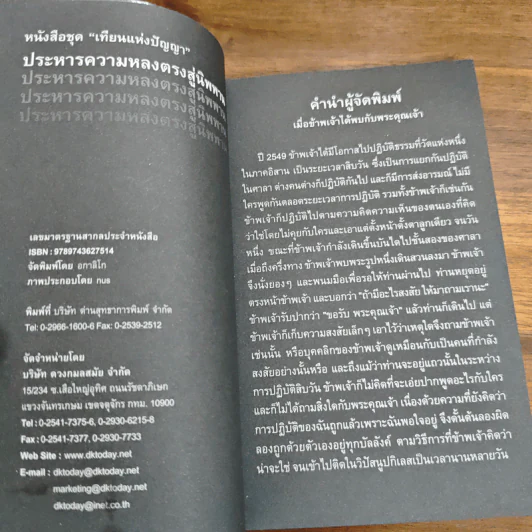 หนังสือชุด "เทียนแห่งปัญญา"
ประหารความหลงตรงสู่นิพพาน
ประหารความหลงตรงสู่นิพพาน
ประหารความหลงตรงสู่นิพพาน
ประหารความหลงตรงสู่นิพพาน
เลขมาตรฐานสากลประจำหนังสือ
ISBN : 9789743627514
จัดพิมพ์โดย อกาลิโก
ภาพประกอบโดย nus
พิมพ์ที่ บริษัท ด่านสุทธาการพิมพ์ จำกัด
Tel: 0-2966-1600-6 Fax: 0-2539-2512
จัดจำหน่ายโดย
บริษัท ดวงกมลสมัย จำกัด
15/234 ซ.เสือใหญ่อุทิศ ถนนรัชดาภิเษก
แขวงจันทรเกษม เขตจตุจักร กทม. 10900
Tel : 0-2541-7375-6, 0-2930-6215-8
Fax : 0-2541-7377, 0-2930-7733
Web Site : www.dktoday.net
E-mail : dktoday@dktoday.net
marketing@dktoday.net
dktoday@inet.co.th
คำนำผู้จัดพิมพ์
เมื่อข้าพเจ้าได้พบกับพระคุณเจ้า
ปี 2549 ข้าพเจ้าได้มีโอกาสไปปฏิบัติธรรมที่วัดแห่งหนึ่ง
ในภาคอีสาน เป็นระยะเวลาสิบวัน ซึ่งเป็นการแยกกันปฏิบัติ
ในศาลา ต่างคนต่างก็ปฏิบัติกันไป และก็มีการส่งอารมณ์ ไม่มี
ใครพูดกันตลอดระยะเวลาการปฏิบัติ รวมทั้งข้าพเจ้าก็เช่นกัน
ข้าพเจ้าก็ปฏิบัติไปตามความคิดความเห็นของตนเองที่คิด
ว่าใช่โดยไม่คุยกับใครและเอาแต่ตั้งหน้าตั้งตาลูกเดียว จนวัน
หนึ่ง ขณะที่ข้าพเจ้ากำลังเดินขึ้นบันไดไปชั้นสองของศาลา
เมื่อถึงครึ่งทาง ข้าพเจ้าพบพระรูปหนึ่งเดินสวนลงมา ข้าพเจ้า
จึงนั่งยองๆ และพนมมือเพื่อรอให้ท่านผ่านไป ท่านหยุดอยู่
ตรงหน้าข้าพเจ้า และบอกว่า "ถ้ามีอะไรสงสัย ให้มาถามเรานะ"
ข้าพเจ้ารับปากว่า "ขอรับ พระคุณเจ้า" แล้วท่านก็เดินไป แต่
ข้าพเจ้าก็เก็บความสงสัยเล็กๆ เอาไว้ว่าเหตุใดจึงถามข้าพเจ้า
เช่นนั้น หรือบุคคลิกของข้าพเจ้าดูเหมือนกับเป็นคนที่กำลัง
สงสัยอย่างนั้นหรือ และถึงแม้ว่าท่านจะอยู่แถวนั้นในระหว่าง
การปฏิบัติสิบวัน ข้าพเจ้าก็ไม่คิดที่จะเอ่ยปากพูดอะไรกับใคร
และก็ไม่ได้ถามสิ่งใดกับพระคุณเจ้า เนื่องด้วยความที่ยังคิดว่า
การปฏิบัติของฉันถูกแล้วเพราะฉันพอใจอยู่ จึงดั้นด้นลองผิด
ลองถูกด้วยตัวเองอยู่ทุกบัลลังค์ ตามวิธีการที่ข้าพเจ้าคิดว่า
น่าจะใช่ จนเข้าไปติดในวิปัสนูปกิเลสเป็นเวลานานหลายวัน